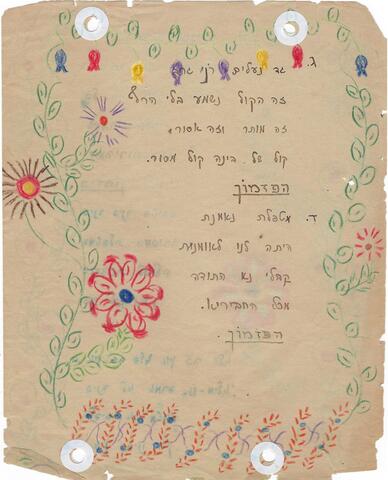 ג. נעלים
זה הקול נשמע בלי הרף
זה מותר וזה אסור.
קול של בינה קול מסור.
הפזמון
ד. מטפלת נאמנת
היתה לנו לאומנת
קבלי נא התודה
מכל החבריא.
הפזמון.